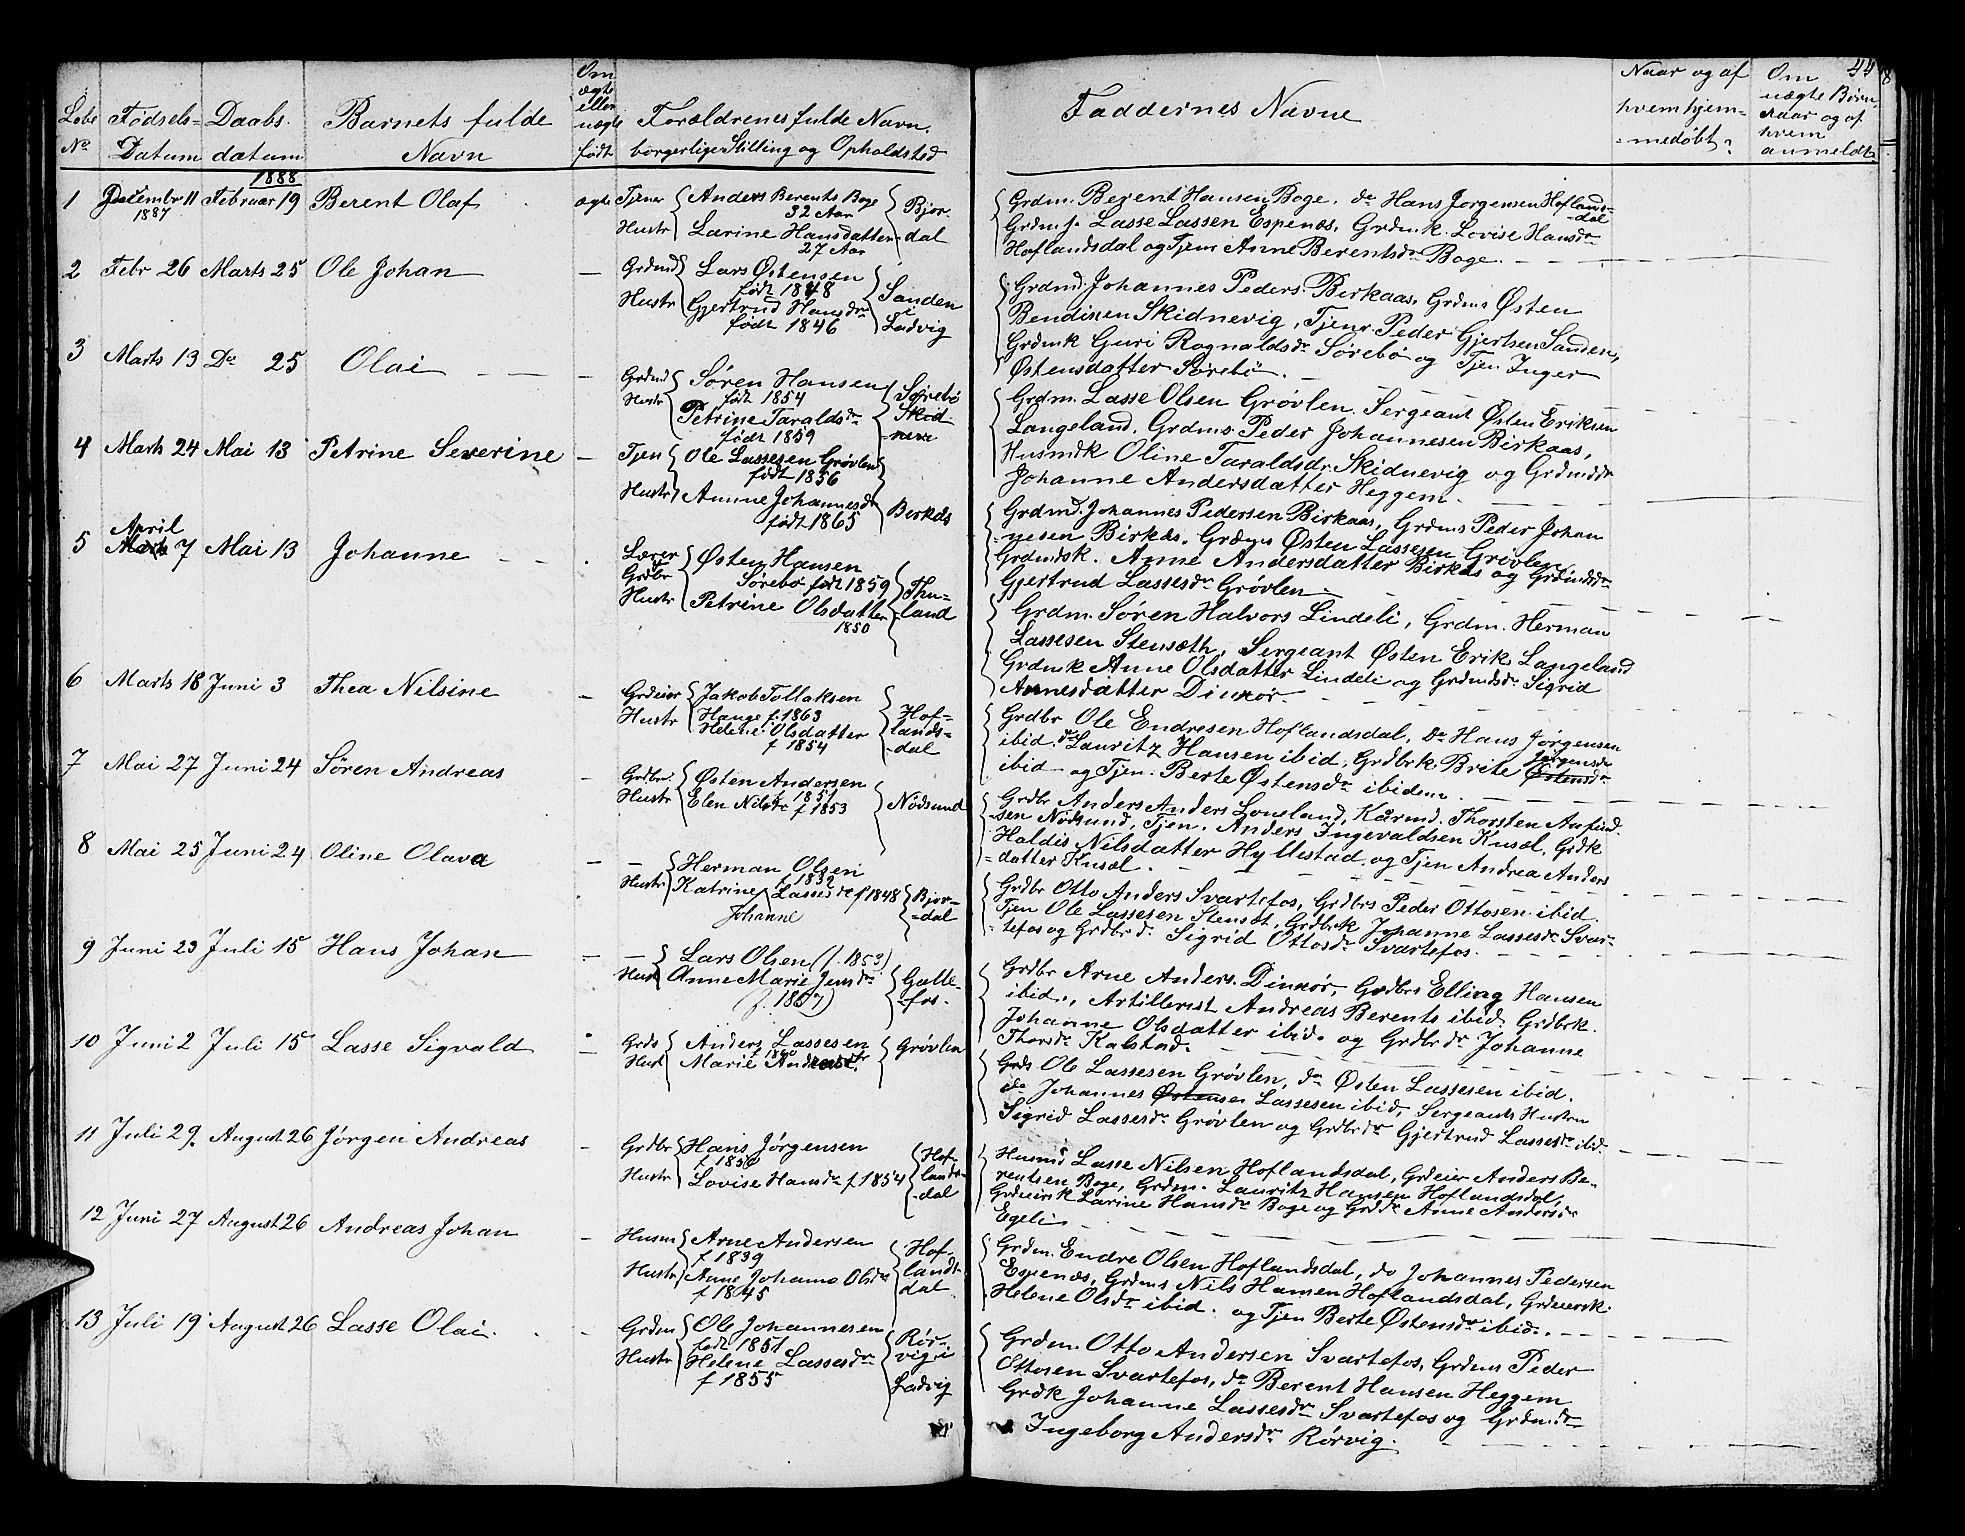 44
Løbe No | Fødsels-Datum | Daabs-datum | Barnets fulde Navn | Om ægte eller uægte født | Forældrenes fulde Navn, borgerlige Stilling og Opholdsted | Faddernes Navne | Naar og af hvem hjem-medøbt? | Om uægte Børn, naar og af hvem anmeldt
1888
1 Decembr 11 1887 Februar 19 Berent Olaf ægte Tjener Anders Berents Boge 32 Aar
Hustr Larine Hansdatter 27 Aar Bjordal
Grdm. Berent Hansen Boge, do Hans Jørgensen Hoflands-dal
Grdms. Lasse Lassen Espenæs, Grdmk. Lovise Hansdr
Hoflandsdal og Tjen Anne Berentsdr Boge.
2 Febr 26 Marts 25 Ole Johan — Grdmd Lars Østensen født 1848
Hustr Gjertrud Hansdr født 1846 Sanden i Ladvig
Grdmd. Johannes Peders. Birkaas, Grdms Østen
Bendixen Skidnevig, Tjenr. Peder Gjertsen Sanden,
Grdmk Guri Rognaldsdr Sørebø og Tjen Inger
Østensdatter Sørebø.
3 Marts 13 Do 25 Olai — Grdmd Søren Hansen født 1854
Hustr Petrine Taraldsdr født 1859 Sørebø Skidnevi
Grdm. Lasse Olsen Grøvlen. Sergeant Østen Eriksen
Langeland, Grdms. Peder Johannesen Birkaas,
Husmdk Oline Taraldsdr. Skidnevig og Grdmdr
Johanne Andersdatter Heggem.
4 Marts 24 Mai 13 Petrine Severine — Tjen Ole Lassesen Grøvlen født 1856
Hustr Amne Johannesdr født 1865 Berkås
Grdmd. Johannes Pedersen Birkaas, Grdms Peder Johan
nesen Birkås, Grdms Østen Lassesen Grøvlen
Grdmdsk. Anne Andersdatter Birkås og Grdmdsdr
Gjertrud Lassesdr Grøvlen
5 April 7 Mai 13 Johanne Lærer Grdbr Østen Hansen Sørebø født 1859
Hustr Petrine Olsdatter 1850 Thuland
Grdm. Søren Halvors Lindeli, Grdm. Herman
Lassesen Stensæth, Sergeant Østen Erik. Langeland
Grdmk Anne Olsdatter Lindeli og Grdmdsdr. Sigrid
Arnesdatter Dinnør
6 Marts 18 Juni 3 Thea Nilsine — Grdeier Jakob Tollaksen Hauge f. 1863
Hustr Helene Olsdatter f 1854 Hoflandsdal
Grdbr Ole Endresen Hoflandsdal, do Hans Jørgensen
ibid. do Lauritz Hansen ibid, Grdbrk. Brite Jørgensdr
ibid og Tjen. Berte Østensdr ibidem.
7 Mai 27 Juni 24 Søren Andreas — Grdbr. Østen Andersen f 1851
Hustr Elen Nilsdr f 1853 Nødsund
Grdbr Anders Anders Loneland, Kårmd. Thorsten Anfind
sen Nødsund, Tjen. Anders Ingevaldsen Kusæl, Grdk
Haldis Nilsdatter Hyllestad og Tjen Andrea Anders
datter Kusæl.
8 Mai 25 Juni 24 Oline Olava — — Herman Olsen f 1832
Hustr Katrine Johanne Lassesdr f 1848 Bjordal
Grdbr Otto Anders Svartefos, Grdbrs Peder Ottosen ibid.
Tjen Ole Lassesen Stensæt, Grdbrk Johanne Lassesdr Svar-
tefos og Grdbrdr. Sigrid Ottosdr Svartefos.
9 Juni 23 Juli 15 Hans Johan — — Lars Olsen (f. 1853)
Hust Anne Marie Jensdr Gallefos.
Grdbr Arne Anders. Dinnør, Grdbrs Elling Hansen
ibid., Artillerist Andreas Berents ibid. Grdbrk.
Johanne Olsdatter ibid. og Grdbrdr Johanne
Thorsdr Kalstad.
10 Juni 2 Juli 15 Lasse Sigvald — Grds Anders Lassesen
Hust Marie Andreasdr. Grøvlen
Grds Ole Lassesen Grøvlen, do Østen Lassesen ibid.
do Johannes Østensen Lassesen ibid, Sergeants Hustru
Sigrid Lassesdr Grøvlen og Grdbrdr Gjertrud Lassesdr ibid.
11 Juli 29. August 26 Jørgen Andreas — Grdbr Hans Jørgensen
Hustr Lovise Hansdr f 1854 Hoflandsdal
Husmd Lasse Nilsen Hoflandsdal, Grdeier Anders Be-
rentsen Boge, Grdm. Lauritz Hansen Hoflandsdal,
Grdeierk Larine Hansdr Boge og Grddr Anne Andersdr
Egeli
12 Juni 27 August 26 Andreas Johan — Husm Arne Andersen f 1839
Hustr Anne Johanne Olsdr f 1845 Hoflandsdal
Grdm. Endre Olsen Hoflandsdal, do Johannes Pedersen
Espenæs, Grdms Nils Hansen Hoflandsdal, Grdeierk.
Helene Olsdr ibid. og Tjen Berte Østensdr ibid.
13 Juli 19 August 26 Lasse Olai — Grdm Ole Johannesen født 1851
Hustr Helene Lassesdr f 1855 Rørvig i Ladvig
Grdm. Otto Andersen Svartefos, Grdms Peder
Ottosen Svartefos, do Berent Hansen Heggem
Grdk Johanne Lassesdr Svartefos og Grdmdr
Ingeborg Andersdr Rørvig.